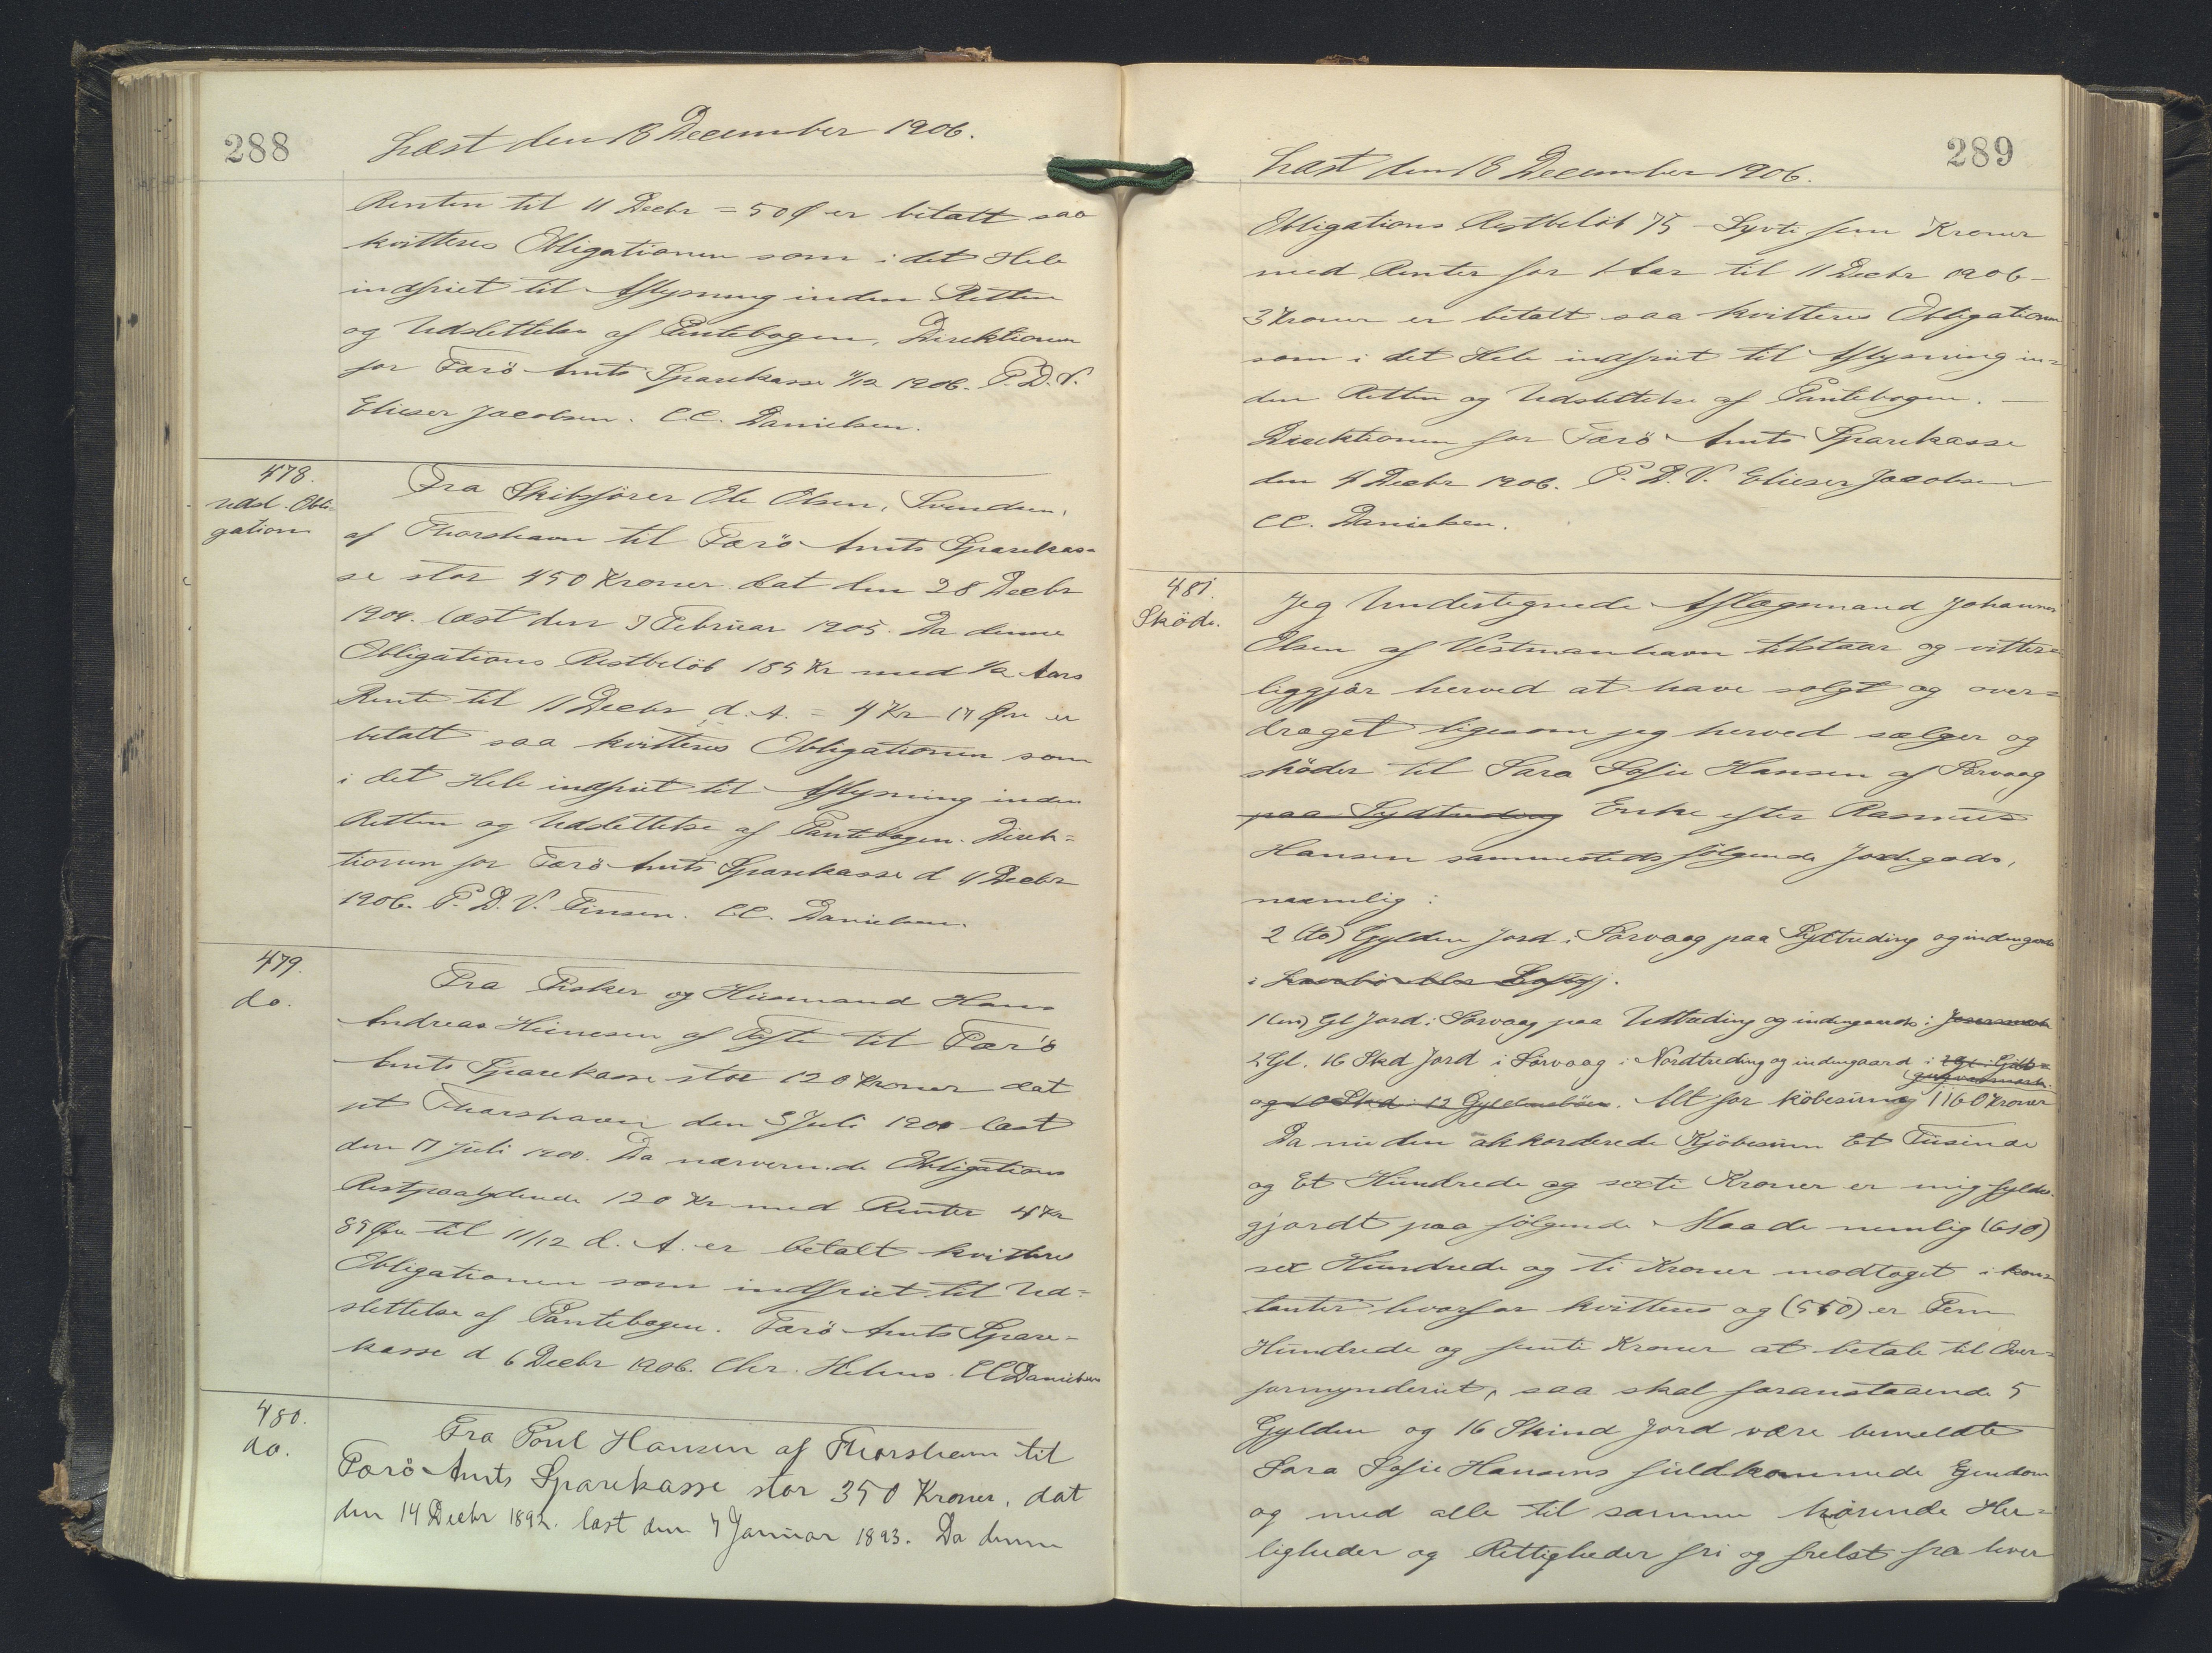 288
Læst den 18 December 1906.
Renten til 11 Decbr = 50 Ø er betalt saa
kvitteres Obligationen som i det Hele
indfriet til Aflysning inden Retten
og Udslettelse af Pantebogen. Direktionen
for Færö Amts Sparekasse 11/12 1906. P.D.V.
Elieser Jacobsen. CC. Danielsen.
478.
udsl. Obli-
gation
Fra Skibsförer Ole Olsen, Svendsen,
af Thorshavn til Færö Amts Sparekas-
se stor 450 Kroner dat den 28 Decbr
1904. læst den 7 Februar 1905. Da denne
Obligations Restbelöb 185 Kr med 1/2 Aars
Rente til 11 Decbr d. A. = 4 Kr 17 Øre er
betalt saa kvitteres Obligationen som
i det Hele indfriet til Aflysning inden
Retten og Udslettelse af Pantebogen. Direk=
tionen for Færö Amts Sparekasse d 11 Decbr
1906. P. D. V. Finsen. CC. Danielsen.
479.
do.
Fra Fisker og Húsmand Hans
Andreas Heinesen af Tofte til Færö
Amts Sparekasse stor 120 Kroner dat
pt Thorshavn den 5 Juli 1900 læst
den 17 Júli 1900. Da nærværende Obligations
Restpaalydende 120 Kr med Renter 4 Kr
85 Øre til 11/12 d. A. er betalt kvitteres
Obligationen som indfriet til Ud=
slettelse af Pantebogen. Færö Amts Spare-
kasse d 6 Decbr 1906. Chr. Helms. CC Danielsen
480.
do.
Fra Poul Hansen af Thorshavn til
Færö Amts Sparekasse stor 350 Kroner, dat
den 14 Decbr 1892. læst den 7 Januar 1893. Da denne
289
Læst den 18 December 1906.
Obligations Restbelöb 75 - Syvti fem Kroner
med Renter for 1 Aar til 11 Decbr 1906 -
3 Kroner er betalt saa kvitteres Obligationen
som i det Hele indfriet til Aflysning in=
den Retten og Udslettelse af Pantebogen. -
Direktionen for Færö Amts Sparekasse
den 11 Decbr 1906. P. D. V. Elieser Jacobsen
CC. Danielsen.
481.
Sköde.
Jeg Undertegnede Aftægsmand Johannes
Olsen af Vestmanhavn tilstaar og vitter-
liggjör herved at have solgt og over=
draget ligesom jeg herved sælger og
sköder til Sara Sofie Hansen af Sörvaag
paa Sydtreding Enke efter Rasmus
Hansen sammesteds fölgende Jordegods,
naamlig:
2 (to) Gylden Jord i Sörvaag paa Sydtreding og indengaards
i
1 (en) Gl Jord i Sörvaag paa Udtræding og indengaards i
2 Gl. 16 Skd Jord i Sörvaag i Nordtreding og indengaard i
og 10 Skd i 12 Gyldeneböen. Alt for köbesúm 1160 Kroner
Da nu den akkorderede Kjöbesum Et Tusinde
og Et Hundrede og sexti Kroner er mig fyldest-
gjordt paa fölgende Maade nemlig (610)
sex Hundrede og ti Kroner modtaget i kon-
tanter hvorfor kvitteres og (550) er Fem
Hundrede og femti Kroner at betale til Over-
formynderiet, saa skal foranstaaende 5
Gylden og 16 Skind Jord være bemeldte
Sara Sofie Hansens fuldkommede Ejendom
og med alle til samme hörende Her=
ligheder og Rettigheder fri og frelst fra hver